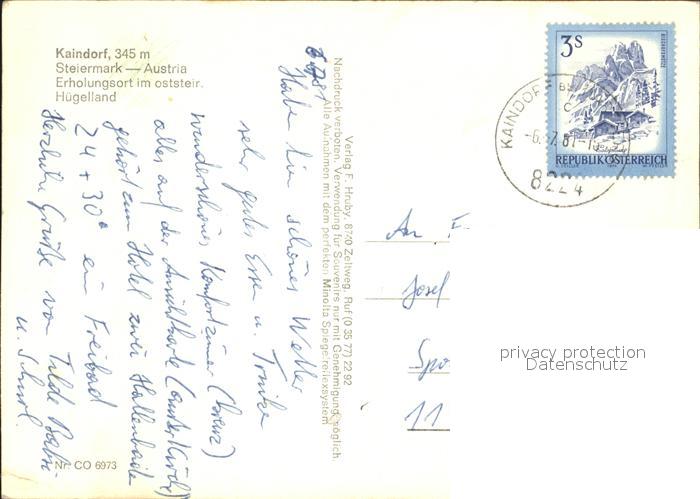 Kaindorf, 345 m
Steiermark — Austria
Erholungsort im oststeir.
Hügelland
6.7.81
Haben hier schönes Wetter
sehr gutes Essen u. Trinken
wunderschönes Komfortzimmer
alles auf der Ansichtkarte (außer Kirche)
gehört zum Hotel zwei Hallenbäder
24 + 30° ein Freibad
Herzliche Grüße von Tilde
u. Schurl.
Nr. CO 6973
Verlag F. Hruby, 8740 Zeltweg, Ruf (0 35 77) 22 92
Nachdruck verboten, Verwendung für Souvenirs nur mit Genehmigung möglich.
Alle Aufnahmen mit dem perfekten Minolta Spiegelreflexsystem
3S
REPUBLIK ÖSTERREICH
KAINDORF
-6.-7.81-1
8224
An F
Josef
Spo
11
privacy protection
Datenschutz